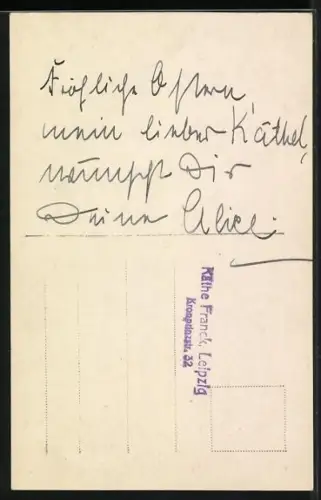 Fröhliche Ostern,
mein lieber Käthel,
wünscht Dir
Deine Alice.
Käthe Franck, Leipzig
Kronprinzstr. 32